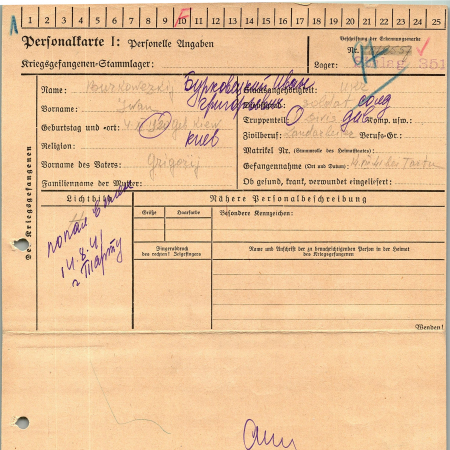 1 2 3 4 5 6 7 8 9 10 11 12 13 14 15 16 17 18 19 20 21 22 23 24 25
Personalkarte I: Personelle Angaben
Kriegsgefangenen-Stammlager:
Beschriftung der Erkennungsmarke
Nr.
Lager: 351
Des Kriegsgefangenen
Name:
Бурковский Иван
Григорьевич
Vorname: Iwan
Geburtstag und -ort:
киев
Religion:
Vorname des Vaters: Grigorij
Familienname der Mutter:
Staatsangehörigkeit:
Dienstgrad: Soldat солд
Truppenteil: Komp. usw.:
Zivilberuf: Berufs-Gr.:
Matrikel Nr. (Stammrolle des Heimatstaates):
Gefangennahme (Ort und Datum): bei Tartu
Ob gesund, krank, verwundet eingeliefert:
Lichtbild
попал в плен
14.8.41
г Тарту
Nähere Personalbeschreibung
Größe
Haarfarbe
Besondere Kennzeichen:
Fingerabdruck
des rechten! Zeigefingers
Name und Anschrift der zu benachrichtigenden Person in der Heimat
des Kriegsgefangenen
Wenden!